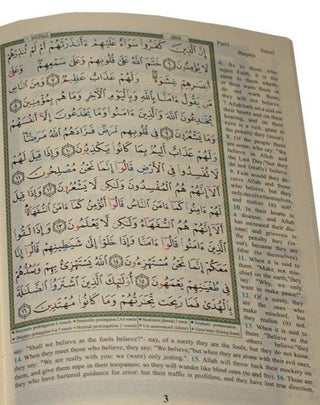 Part1
Baqara
Sura2
إِنَّ الَّذِينَ كَفَرُوا سَوَاءٌ عَلَيْهِمْ ءَأَنذَرْتَهُمْ أَمْ لَمْ تُنذِرْهُمْ
لَا يُؤْمِنُونَ ٦ خَتَمَ اللَّهُ عَلَىٰ قُلُوبِهِمْ وَعَلَىٰ سَمْعِهِمْ وَعَلَىٰ
أَبْصَٰرِهِمْ غِشَٰوَةٌ وَلَهُمْ عَذَابٌ عَظِيمٌ ٧ وَمِنَ النَّاسِ
مَن يَقُولُ ءَامَنَّا بِاللَّهِ وَبِالْيَوْمِ الْآخِرِ وَمَا هُم بِمُؤْمِنِينَ ٨
يُخَٰدِعُونَ اللَّهَ وَالَّذِينَ ءَامَنُوا وَمَا يَخْدَعُونَ إِلَّا أَنفُسَهُمْ
وَمَا يَشْعُرُونَ ٩ فِي قُلُوبِهِم مَّرَضٌ فَزَادَهُمُ اللَّهُ مَرَضًا
وَلَهُمْ عَذَابٌ أَلِيمٌ بِمَا كَانُوا يَكْذِبُونَ ١٠ وَإِذَا قِيلَ لَهُمْ
لَا تُفْسِدُوا فِي الْأَرْضِ قَالُوا إِنَّمَا نَحْنُ مُصْلِحُونَ ١١
أَلَا إِنَّهُمْ هُمُ الْمُفْسِدُونَ وَلَٰكِن لَّا يَشْعُرُونَ ١٢ وَإِذَا قِيلَ
لَهُمْ ءَامِنُوا كَمَا ءَامَنَ النَّاسُ قَالُوا أَنُؤْمِنُ كَمَا ءَامَنَ السُّفَهَاءُ
أَلَا إِنَّهُمْ هُمُ السُّفَهَاءُ وَلَٰكِن لَّا يَعْلَمُونَ ١٣ وَإِذَا لَقُوا
الَّذِينَ ءَامَنُوا قَالُوا ءَامَنَّا وَإِذَا خَلَوْا إِلَىٰ شَيَٰطِينِهِمْ قَالُوا إِنَّا
مَعَكُمْ إِنَّمَا نَحْنُ مُسْتَهْزِءُونَ ١٤ اللَّهُ يَسْتَهْزِئُ بِهِمْ وَيَمُدُّهُمْ
فِي طُغْيَٰنِهِمْ يَعْمَهُونَ ١٥ أُولَٰئِكَ الَّذِينَ اشْتَرَوُا الضَّلَٰلَةَ
بِالْهُدَىٰ فَمَا رَبِحَت تِّجَٰرَتُهُمْ وَمَا كَانُوا مُهْتَدِينَ ١٦
6. As to those who
reject Faith, it is
7. Allah hath set a seal
hearts and
8. Of the people there
in Allah and
the Last Day;" but they
9. Fain would they
deceive Allah and
those who believe, but
they only deceive
themselves, and
realize (it) not!
10. In their hearts
is a disease; and
Allah has increased
their disease: and
grievous is the
penalty they (incur),
because they are
false (to themselves).
11. When it is said to
them: "Make not mis-
chief on the earth," they
say: "Why, we only
want to make peace!"
12. Of a surety, they
are the ones who
make mischief, but
they realize (it) not.
13. When it is said to
them: "Believe as the
others believe:" they
say: "Shall we believe as the fools believe?"- nay, of a surety they are the fools, but they do not know.
14. When they meet those who believe, they say: "We believe," but when they are alone with their evil ones,
they say: "We are really with you: we (were) only jesting." 15. Allah will throw back their mockery on
them, and give them rope in their trespasses; so they will wander like blind ones (to and fro). 16. These are
they who have bartered guidance for error: but their traffic is profitless, and they have lost true direction,
3